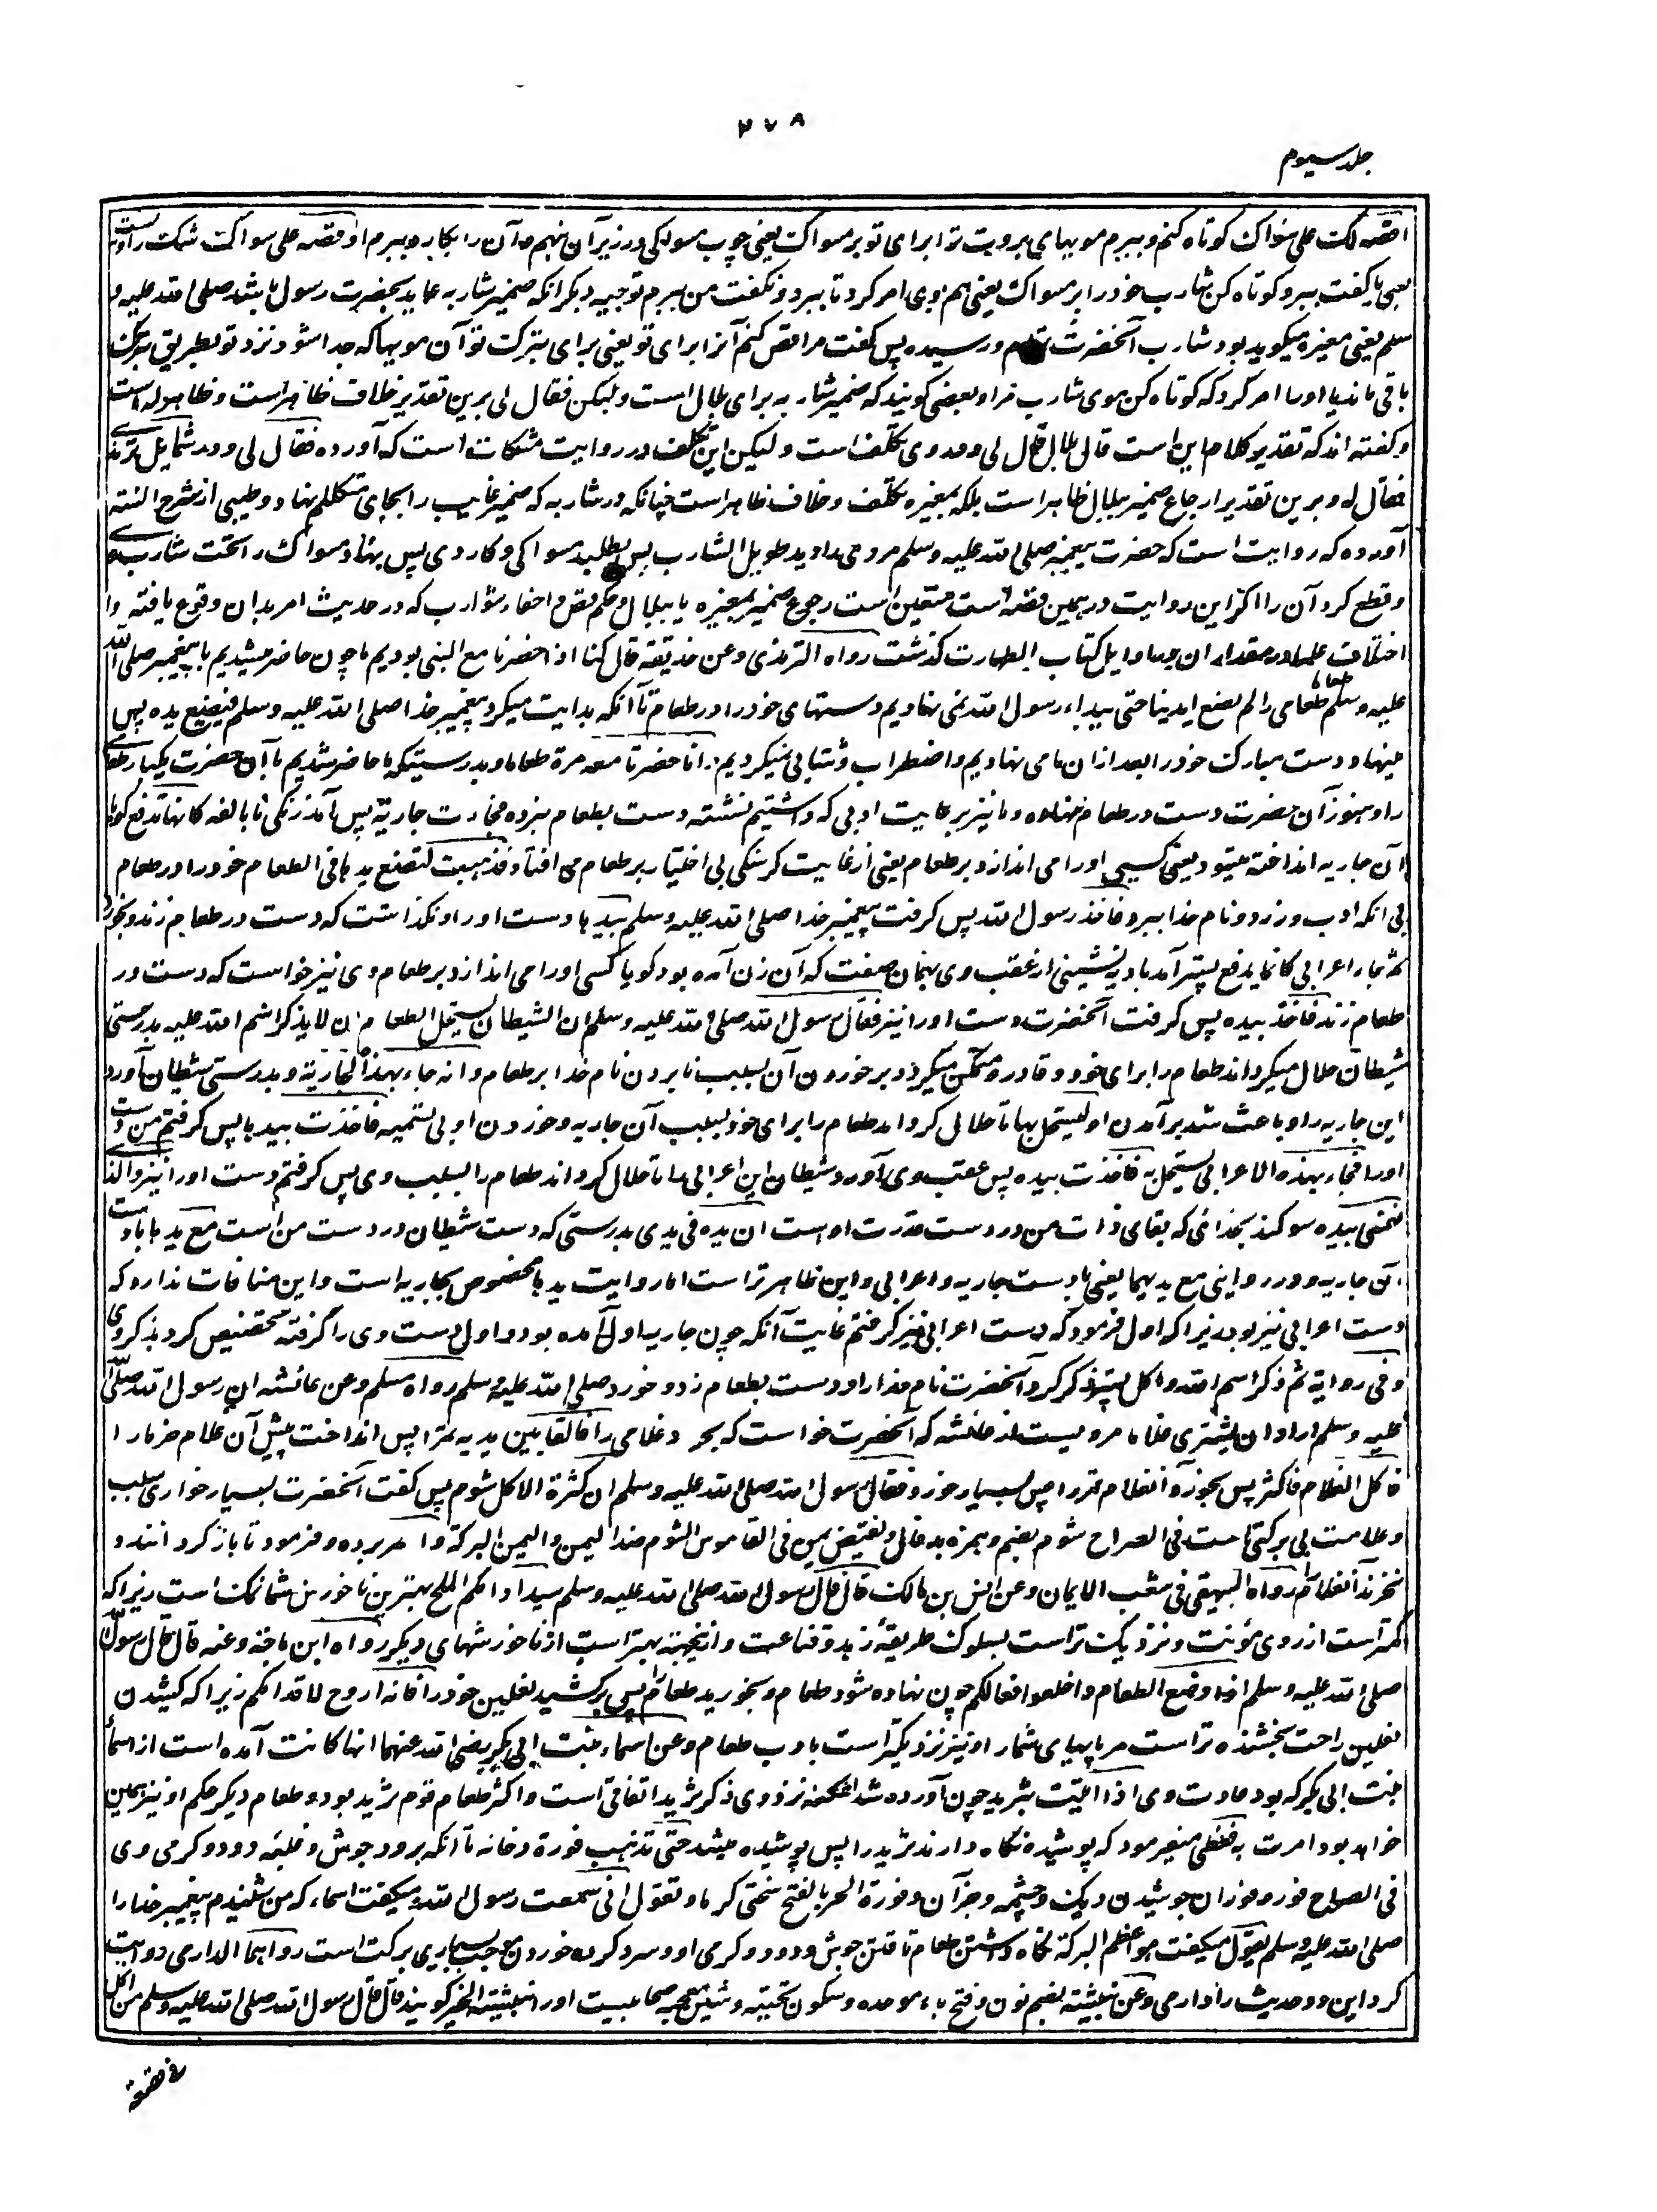 ۲۷۸
جلد سیوم
اقصه لک علی سواک کوتاه کنم و ببرم مویهای بروت ترا برای تو بر مسواک یعنی چوب مسواکی در زیر آن بنهم و آن را بکارد ببرم او قصه علی سواک شک راویست
یعنی یا گفت ببر و کوتاه کن شارب خود را بر مسواک یعنی هم بوی امر کرد تا ببرد و نگفت من ببرم توجیه دیگر آنکه ضمیر شاربه عاید بحضرت رسول باشد صلی الله علیه و
سلم یعنی مغیره میگوید بود شارب آنحضرت تمام و رسیده پس گفت مرا قص کنم آنرا برای تو یعنی برای تبرک تو آن مویها که جدا شود نزد تو بطریق تبرک
باقی ماند یا او را امر کرد که کوتاه کن موی شارب مرا و بعضی گویند که ضمیر شاربه برای بلال است ولیکن فقال لی برین تقدیر خلاف ظاهر است و ظاهر له است
و گفته اند که تقدیر کلام این است قال بلال قال لی و در وی تکلف است ولیکن این تکلف در روایت مشکات است که آورده فقال لی و در شمایل ترمذی
فقال له و برین تقدیر ارجاع ضمیر ببلال ظاهر است بلکه بمغیره تکلف و خلاف ظاهر است چنانکه در شاربه که ضمیر غایب را بجای متکلم نهاد و طیبی از شرح السنه
آورده که روایت است که حضرت پیغمبر صلی الله علیه وسلم مردی را دید طویل الشارب پس بطلبید مسواکی و کاردی پس بنهاد مسواک را تحت شارب وی
و قطع کرد آن را اگر این روایت در همین قصه است متعین است رجوع ضمیر بمغیره یا ببلال و حکم قص و احفاء شوارب که در حدیث امر بدان وقوع یافته و
اختلاف علما در مقدار آن در اوایل کتاب الطهارت گذشت رواه الترمذی وعن حذیفة قال کنا اذا حضرنا مع النبی بودیم ما چون حاضر میشدیم با پیغمبر صلی الله
علیه وسلم طعاما طعامی را لم نضع ایدینا حتی یبدأ رسول الله نمی نهادیم دستهای خود را در طعام تا آنکه بدایت میکرد پیغمبر خدا صلی الله علیه وسلم فیضع یده پس
مینهاد دست مبارک خود را بعد ازان ما می نهادیم و اضطراب و شتابی نمیکردیم وانا حضرنا معه مرة طعاما و بدرستیکه ما حاضر شدیم با آن حضرت یکبار طعامی
را و هنوز آن حضرت دست در طعام ننهاده و ما نیز برعایت ادبی که داشتیم نشسته دست بطعام نبرده فجاءت جاریة پس آمد زنکی نابالغه کانها تدفع گویا
آن جاریه انداخته میشود یعنی کسی او را می اندازد بر طعام یعنی از غایت گرسنگی بی اختیار بر طعام می افتاد فذهبت لتضع یدها فی الطعام خود را در طعام
بی آنکه ادب ورزد و نام خدا ببرد فاخذ رسول الله پس گرفت پیغمبر خدا صلی الله علیه وسلم بیدها دست او را و نگذاشت که دست در طعام زند و بخورد
ثم جاء اعرابی کانما یدفع پستر آمد بادیه نشینی از عقب وی بهمان صفت که آن زن آمده بود گویا کسی او را می اندازد بر طعام وی نیز خواست که دست در
طعام زند فاخذ بیده پس گرفت آنحضرت دست او را نیز فقال رسول الله صلی الله علیه وسلم ان الشیطان یستحل الطعام ان لا یذکر اسم الله علیه بدرستی
شیطان حلال میگرداند طعام را برای خود و قادر و متمکن میگردد بر خوردن آن بسبب نابردن نام خدا بر طعام وانه جاء بهذه الجاریة و بدرستی شیطان آورد
این جاریه را و باعث شد برآمدن او لیستحل بها تا حلال گرداند طعام را برای خود بسبب آن جاریه و خوردن او بی تسمیه فاخذت بیدها پس گرفتم من دست
او را فجاء بهذا الاعرابی لیستحل به فاخذت بیده پس عقب وی آورد شیطان این اعرابی را تا حلال گرداند طعام را بسبب وی پس گرفتم دست او را نیز والذی
نفسی بیده سوگند بخدائی که بقای ذات من در دست قدرت اوست ان یده فی یدی بدرستی که دست شیطان در دست من است مع یدها با دست
آن جاریه و در روایتی مع یدیهما یعنی با دست جاریه و اعرابی و این ظاهرتر است اما روایت یدها مخصوص بجاریه است و این منافات ندارد که
دست اعرابی نیز بود زیرا که اول فرمود که دست اعرابی نیز گرفتم غایت آنکه چون جاریه اول آمده بود و اول دست وی را گرفته تخصیص کرد بذکر وی
و فی روایة ثم ذکر اسم الله و اکل پستر ذکر کرد آنحضرت نام خدا را و دست بطعام زد و خورد صلی الله علیه وسلم رواه مسلم وعن عائشه ان رسول الله صلی الله
علیه وسلم اراد ان یشتری غلاما مرویست از عائشه که آنحضرت خواست که بخرد غلامی را فالقا بین یدیه تمرا پس انداخت پیش آن غلام خرما را
فاکل الغلام فاکثر پس بخورد آنغلام تمر را پس بسیار خورد فقال رسول الله صلی الله علیه وسلم ان کثرة الاکل شوم پس گفت آنحضرت بسیار خواری سبب
و علامت بی برکتی است فی الصراح شوم بضم و همزه بدفالی و نقیض یمن فی القاموس الشوم ضد الیمن والیمن البرکة و امر برده و فرمود تا باز گردانند و
نخرند آنغلام را رواه البیهقی فی شعب الایمان وعن انس بن مالک قال قال رسول الله صلی الله علیه وسلم سید ادامکم الملح بهترین ناخورش شما نمک است زیرا که
کمتر است از روی مؤنت و نزدیک تر است بسلوک طریقه زهد و قناعت و ازینجهة بهتر است از ناخورشهای دیگر رواه ابن ماجة وعنه قال قال رسول الله
صلی الله علیه وسلم اذا وضع الطعام واخلعوا نعالکم چون نهاده شود طعام و بخورید طعام پس برکشید نعلین خود را فانه اروح لاقدامکم زیرا که کشیدن
نعلین راحت بخشنده تر است مر پایهای شما را و نیز نزدیکتر است بادب طعام وعن اسماء بنت ابی بکر رضی الله عنهما انها کانت آمده است از اسماء
بنت ابی بکر که بود عادت وی اذا اتیت بثرید چون آورده شد اشکنه نزد وی ذکر ثرید اتفاقی است و اکثر طعام قوم ثرید بود و طعام دیگر حکم او نیز همین
خواهد بود امرت به فغطی میفرمود که پوشیده نگاه دارند ثرید را پس پوشیده میشد حتی تذهب فورة دخانه تا آنکه برود جوش و غلبه دود و گرمی وی
فی الصراح فور و فوران جوشیدن دیک و چشمه و جز آن و فورة الحر بالفتح سختی گرما و تقول انی سمعت رسول الله و میگفت اسماء که من شنیدم پیغمبر خدا را
صلی الله علیه وسلم یقول میگفت هو اعظم البرکة نگاه داشتن طعام تا رفتن جوش و دود و گرمی او و سرد کرده خوردن موجب بسیاری برکت است رواهما الدارمی روایت
کرد این دو حدیث را دارمی وعن نبیشة بضم نون و فتح باء موحده و سکون تحتیه و شین معجمه صحابیست او را نبیشة الخیر گویند قال قال رسول الله صلی الله علیه وسلم من اکل
فی قصعة